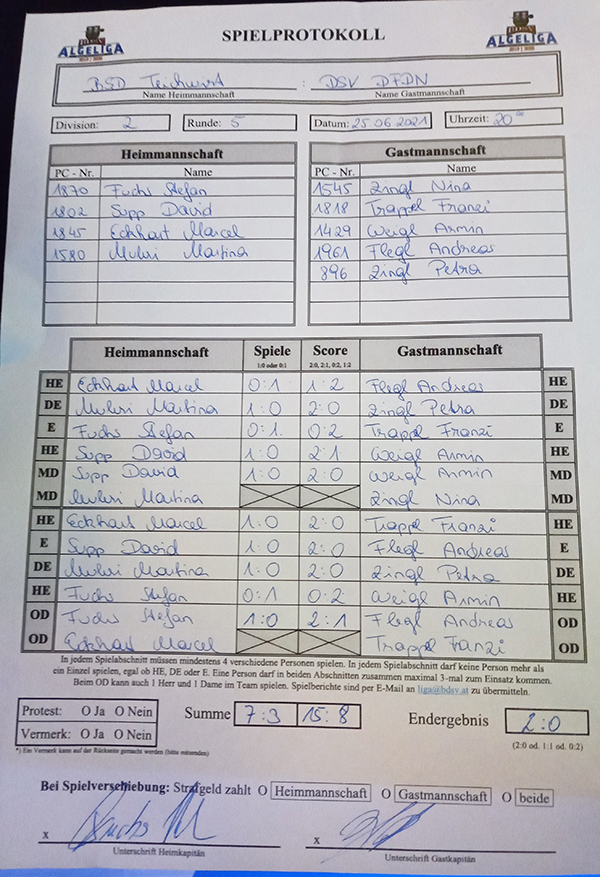 ALGELIGA
SPIELPROTOKOLL
ALGELIGA
BSD Teichwirt : DSV DFDN
Name Heimmannschaft Name Gastmannschaft
Division: 2 Runde: 5 Datum: 25 06 2021 Uhrzeit: 20°°
Heimmannschaft Gastmannschaft
PC - Nr. Name PC - Nr. Name
1870 Fuchs Stefan 1545 Zingl Nina
1802 Supp David 1818 Trappel Franzi
1845 Eckhart Marcel 1429 Weigl Armin
1580 Muhri Martina 1961 Flegl Andreas
896 Zingl Petra
Heimmannschaft Spiele Score Gastmannschaft
1:0 oder 0:1 2:0, 2:1, 0:2, 1:2
HE Eckhart Marcel 0:1 1:2 Flegl Andreas HE
DE Muhri Martina 1:0 2:0 Zingl Petra DE
E Fuchs Stefan 0:1 0:2 Trappl Franzi E
HE Supp David 1:0 2:1 Weigl Armin HE
MD Supp David 1:0 2:0 Weigl Armin MD
MD Muhri Martina Zingl Nina MD
HE Eckhart Marcel 1:0 2:0 Trappl Franzi HE
E Supp David 1:0 2:0 Flegl Andreas E
DE Muhri Martina 1:0 2:0 Zingl Petra DE
HE Fuchs Stefan 0:1 0:2 Weigl Armin HE
OD Fuchs Stefan 1:0 2:1 Flegl Andreas OD
OD Eckhart Marcel Trappel Franzi OD
In jedem Spielabschnitt müssen mindestens 4 verschiedene Personen spielen. In jedem Spielabschnitt darf keine Person mehr als
ein Einzel spielen, egal ob HE, DE oder E. Eine Person darf in beiden Abschnitten zusammen maximal 3-mal zum Einsatz kommen.
Beim OD kann auch 1 Herr und 1 Dame im Team spielen. Spielberichte sind per E-Mail an liga@bdsv.at zu übermitteln.
Protest: O Ja O Nein Summe 7:3 15:8 Endergebnis 2:0
Vermerk: O Ja O Nein (2:0 od. 1:1 od. 0:2)
*) Ein Vermerk kann auf der Rückseite gemacht werden (bitte mitsenden)
Bei Spielverschiebung: Strafgeld zahlt O Heimmannschaft O Gastmannschaft O beide
x x
Unterschrift Heimkapitän Unterschrift Gastkapitän